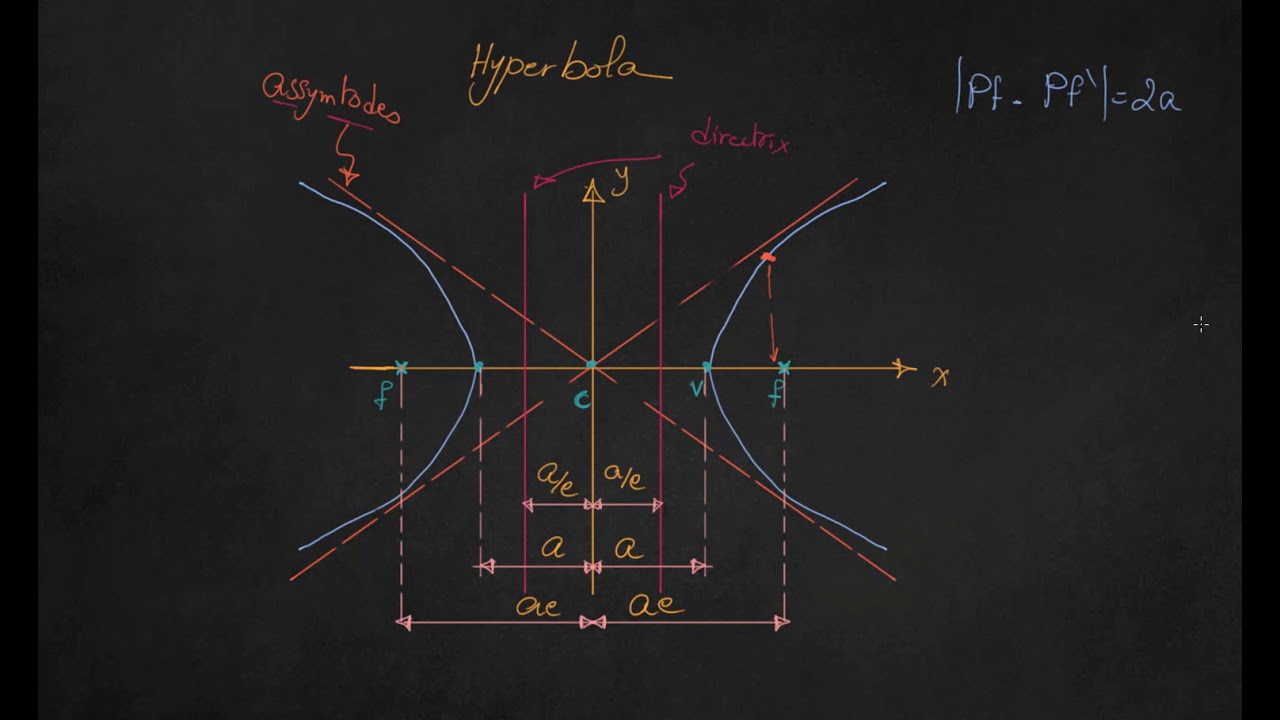 Hyperbola
assymtodes
|Pf - Pf'| = 2a
directrix
y
x
f
c
v
f
a/e a/e
a a
ae ae